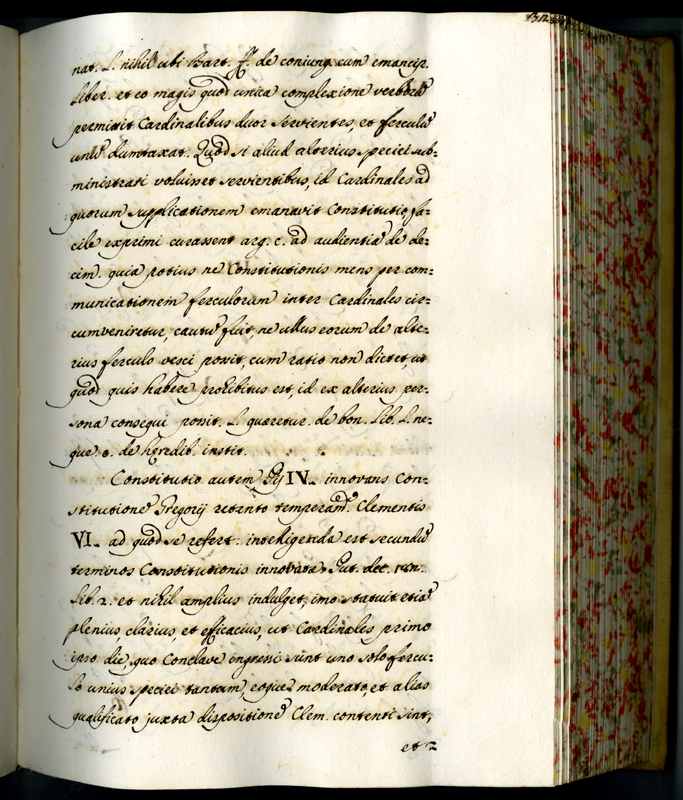 nat. L. nihil ubi Bart. ff. de coniung. cum emancip.
liber. et eo magis quod unica complexione verborũ
permisit Cardinalibus duos servientes, et ferculũ
unũ dumtaxat. Quod si aliud alterius speciei sub=
ministrari voluisset servientibus, id Cardinales ad
quorum supplicationem emanavit Constitutio, fa=
cile exprimi curassent arg. c. ad audientiã de de=
cim. quia potius ne Constitutionis mens per com=
municationem ferculorum inter Cardinales cir=
cumveniretur, cautũ fuit, ne ullus eorum de alte=
rius ferculo vesci possit, cum ratio non dictet, ut
quod quis habere prohibitus est, id ex alterius per=
sona consequi possit. L. quaeretur. de bon. lib. L. ne=
que e. de hęredib. instit.
Constitutio autem Pij IV. innovans Con=
stitutionẽ Gregorij retento temperam. Clementis
VI. ad quod se refert: intelligenda est secundũ
terminos Constitutionis innovatæ. Put. dec.
lib. 2. et nihil amplius indulget, imo statuit etiã
plenius, clarius, et efficacius, ut Cardinales primo
ipso die, quo Conclave ingressi sunt uno solo fercu=
lo unius speciei tantum, eoque moderato, et alias
qualificato juxta dispositionẽ Clem. contenti sint,
et